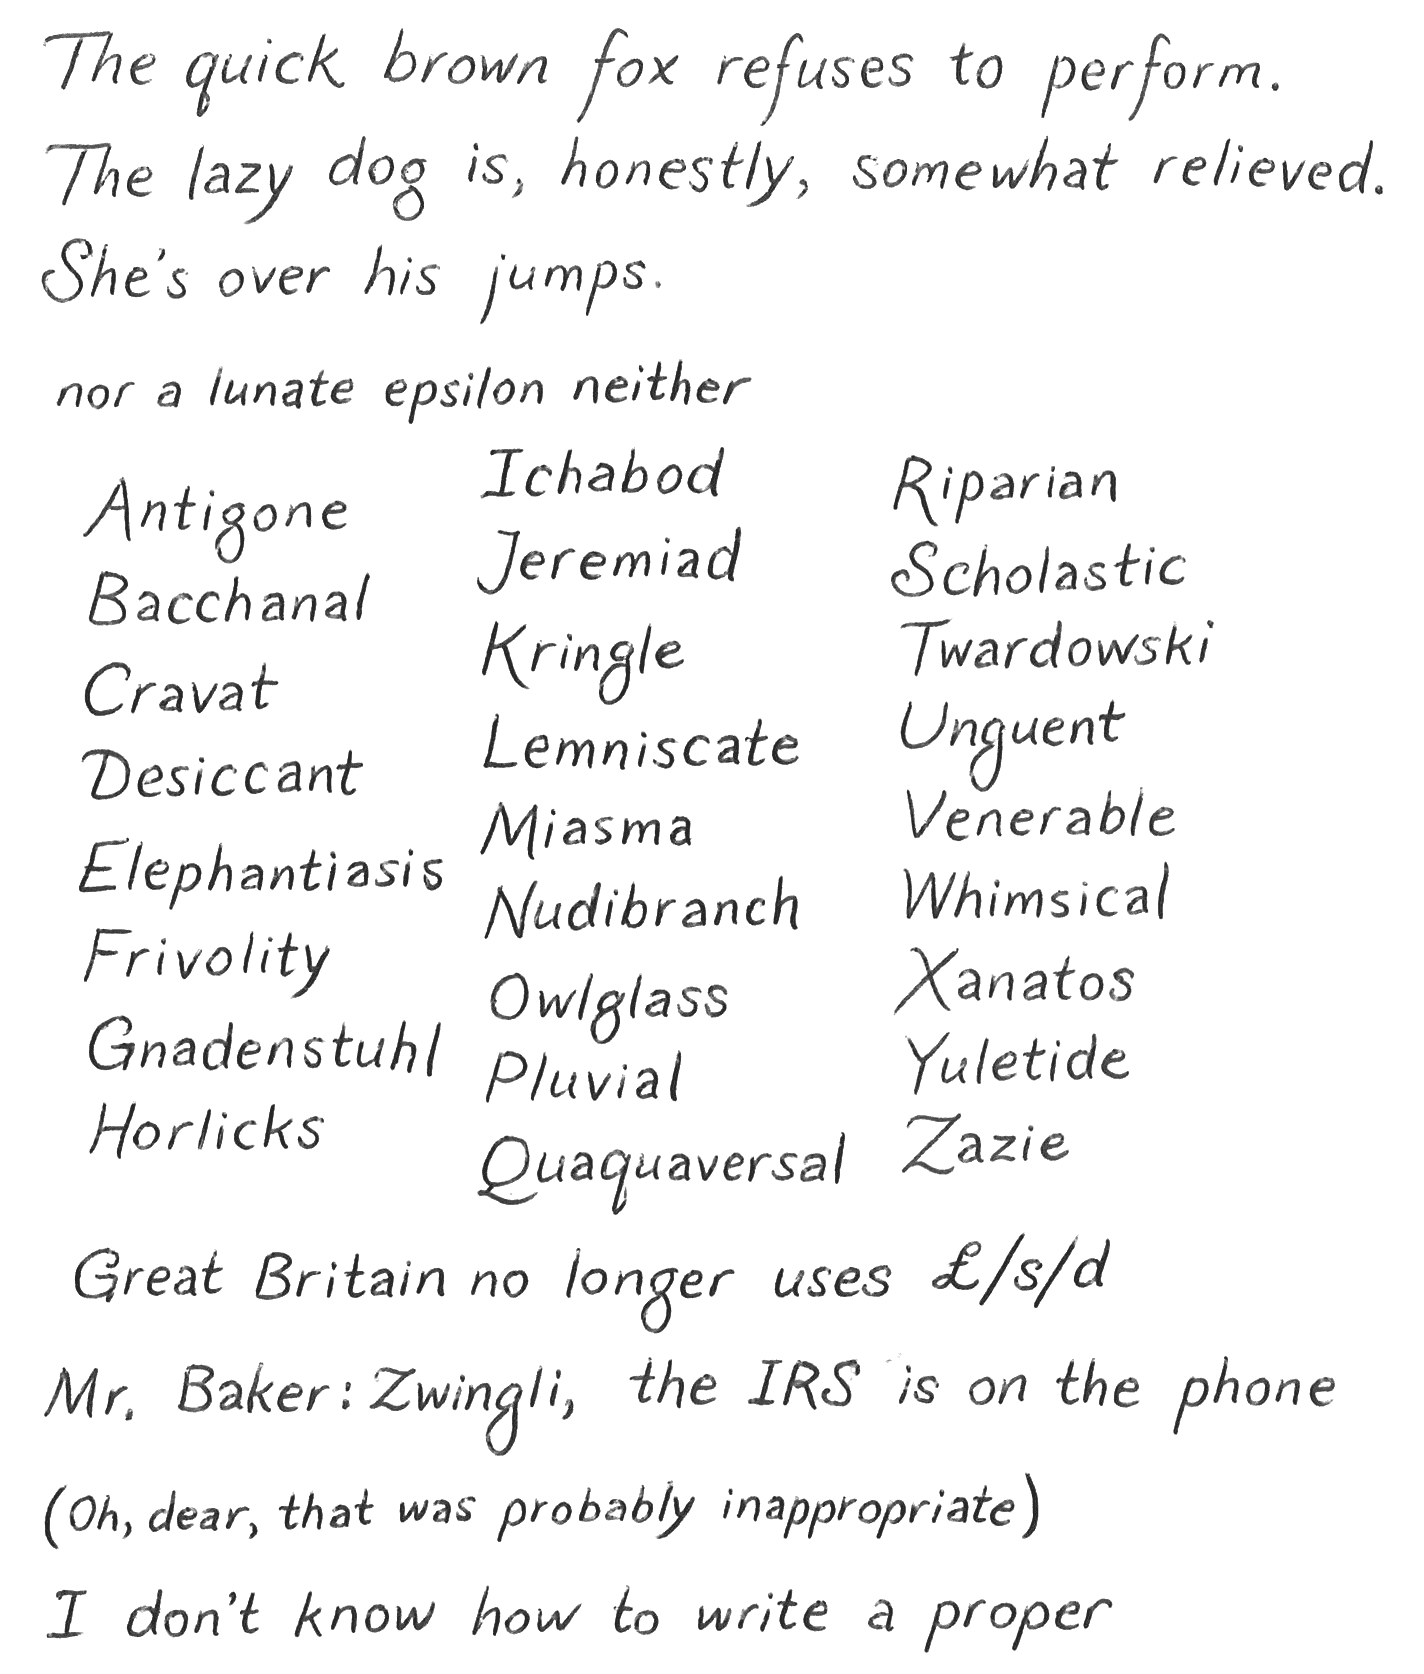 The quick brown fox refuses to perform.
The lazy dog is, honestly, somewhat relieved.
She's over his jumps.
nor a lunate epsilon neither
Antigone
Bacchanal
Cravat
Desiccant
Elephantiasis
Frivolity
Gnadenstuhl
Horlicks
Ichabod
Jeremiad
Kringle
Lemniscate
Miasma
Nudibranch
Owlglass
Pluvial
Quaquaversal
Riparian
Scholastic
Twardowski
Unguent
Venerable
Whimsical
Xanatos
Yuletide
Zazie
Great Britain no longer uses £/s/d
Mr. Baker: Zwingli, the IRS is on the phone
(Oh, dear, that was probably inappropriate)
I don't know how to write a proper